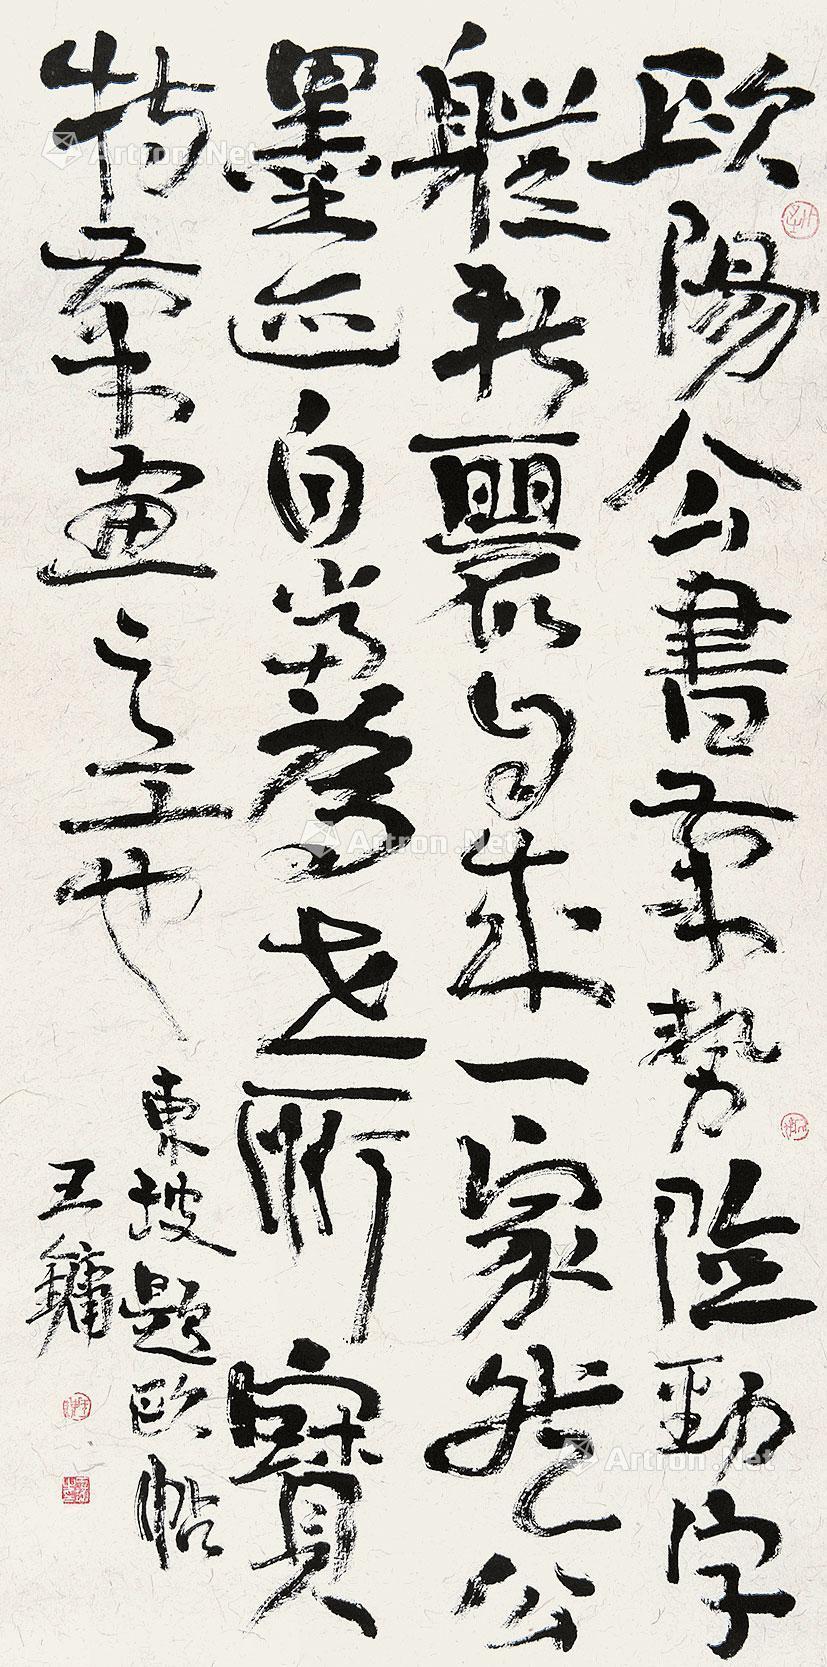 歐陽公書筆勢險勁字
體新麗自成一家然公
墨迹自當爲世所寶
特筆畫之工也
東坡題歐帖
王鏞
Artron.Net
Artron.Net
Artron.Net